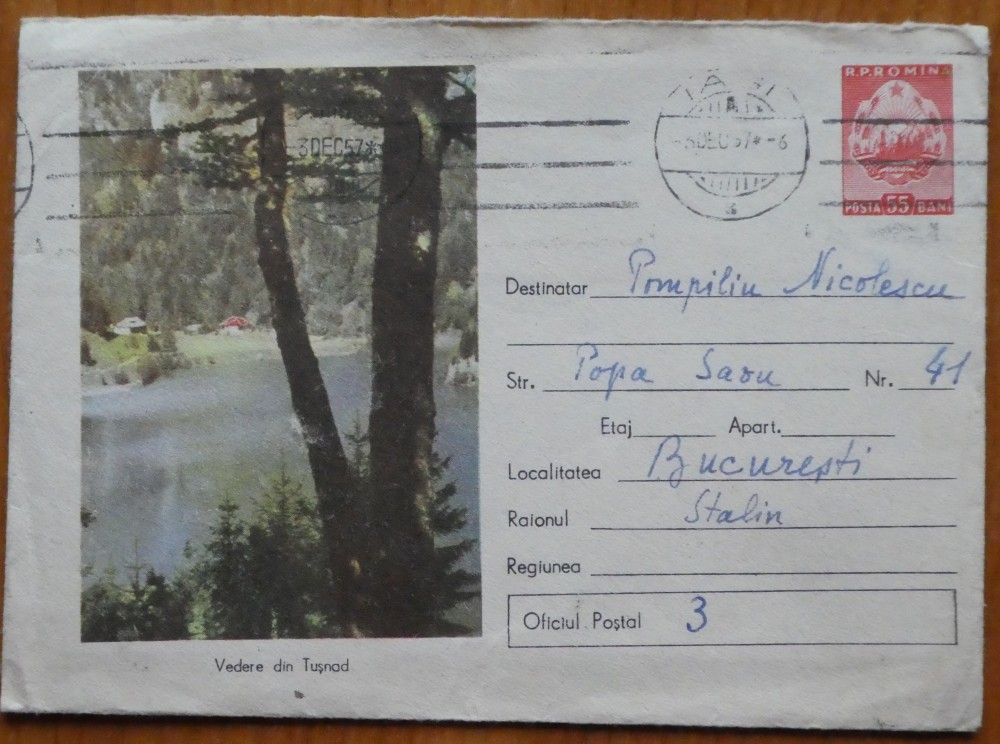 R.P.ROMINA
POSTA 55 BANI
IAȘI
-3DEC57*
-3DEC57*-6
Destinatar Pompiliu Nicolescu
Str. Popa Savu Nr. 41
Etaj Apart.
Localitatea București
Raionul Stalin
Regiunea
Oficiul Poștal 3
Vedere din Tușnad